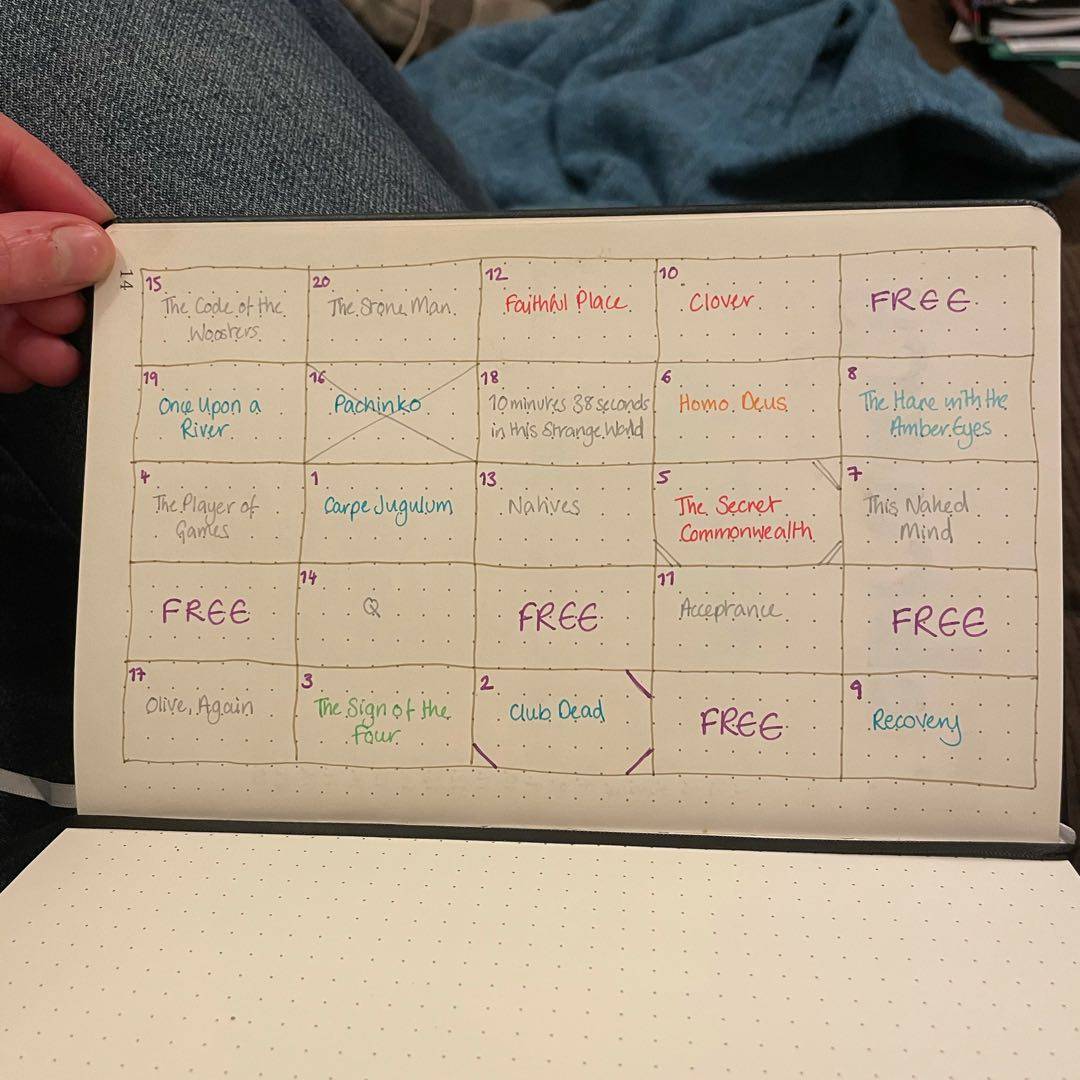 14
15
The Code of the
Woosters.
20
The Stone Man.
12
Faithful Place
10
Clover
FREE
19
Once Upon a
River
16
Pachinko
18
10 minutes 38 seconds
in this Strange World
6
Homo Deus
8
The Hare with the
Amber Eyes
4
The Player of
Games
1
Carpe Jugulum
13
Natives
5
The Secret
Commonwealth
7
This Naked
Mind
FREE
14
Q
FREE
11
Acceptance
FREE
17
Olive, Again
3
The Sign of the
Four
2
Club Dead
FREE
9
Recovery